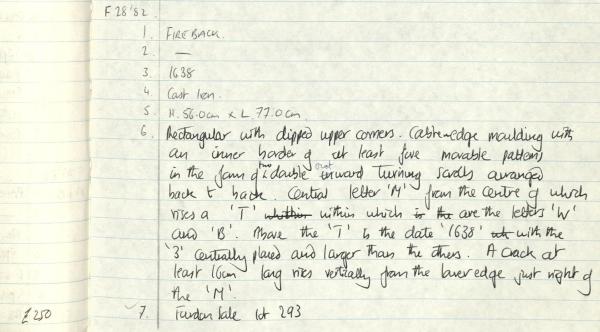 F 28'82.
1. FIREBACK.
2. —
3. 1638
4. Cast Iron.
5. H. 56.0cm x L. 77.0cm.
6. Rectangular with clipped upper corners. Cable-edge moulding with
an inner border of at least five movable patterns
in the form of two double outward turning scrolls arranged
back to back. Central letter 'M' from the centre of which
rises a 'T' within which are the letters 'W'
and 'B'. Above the 'T' is the date '1638' with the
'3' centrally placed and larger than the others. A crack at
least 16cm long rises vertically from the lower edge just right of
the 'M'.
£250 7. Sale lot 293